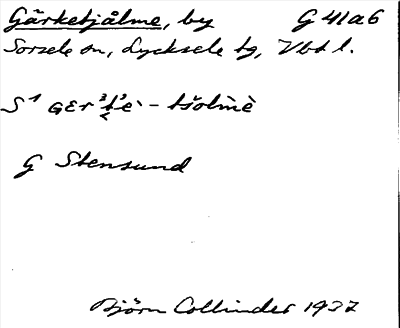 Gärketjålme, by G 41a6
Sorsele sn, Lycksele tg, Vbtl.
S¹ GEr
G Stensund
Björn Collinder 1937